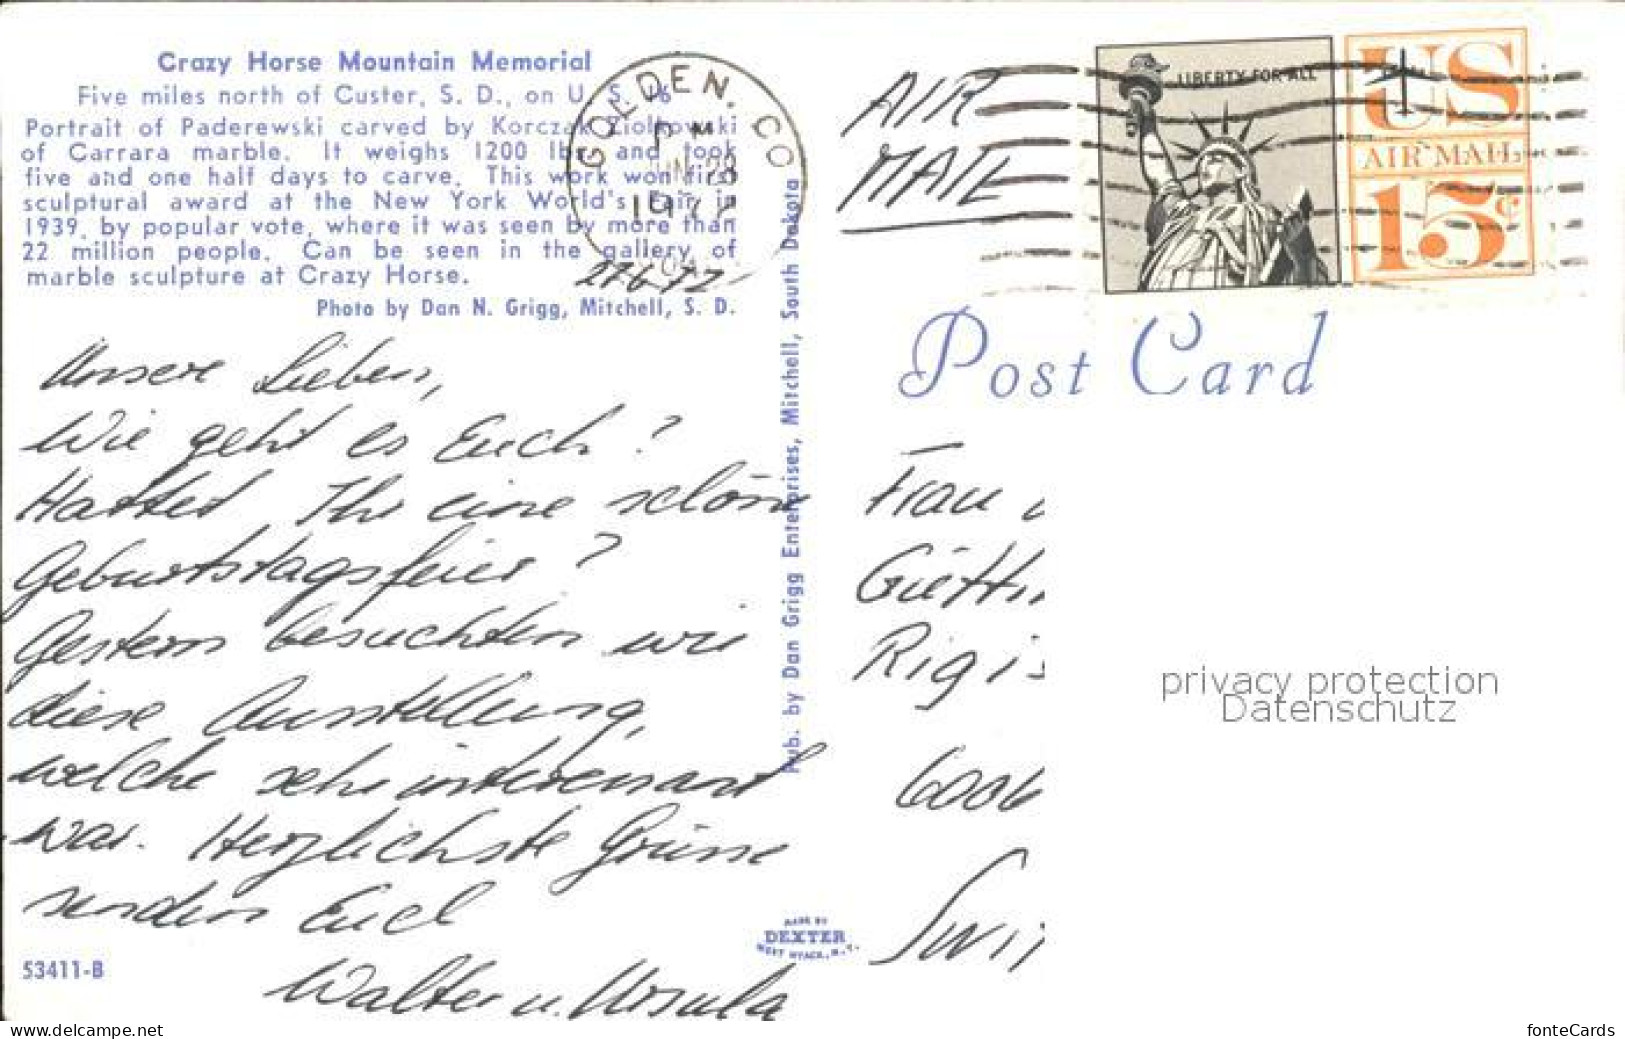 Crazy Horse Mountain Memorial
Five miles north of Custer, S. D., on U. S. 16
Portrait of Paderewski carved by Korczak Ziolkowski
of Carrara marble. It weighs 1200 lbs. and took
five and one half days to carve. This work won first
sculptural award at the New York World's Fair in
1939, by popular vote, where it was seen by more than
22 million people. Can be seen in the gallery of
marble sculpture at Crazy Horse.
Photo by Dan N. Grigg, Mitchell, S. D.
GOLDEN, CO
PM
27.6.72
Unsere Lieben,
Wie geht es Euch?
Hattet Ihr eine schöne
Geburtstagsfeier?
Gestern besuchten wir
diese Ausstellung,
welche sehr interessant
war. Herzlichste Grüsse
senden Euch
Walter u. Ursula
53411-B
Pub. by Dan Grigg Enterprises, Mitchell, South Dakota
MADE BY
DEXTER
WEST NYACK, N. Y.
AIR
MAIL
LIBERTY FOR ALL
US
AIR MAIL
15c
Post Card
Frau
6006
privacy protection
Datenschutz
www.delcampe.net
fonteCards